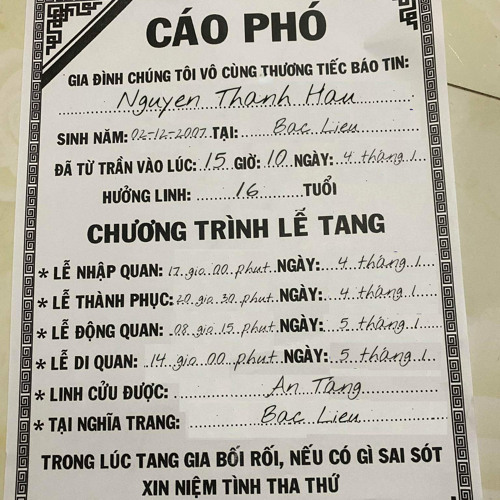 CÁO PHÓ
GIA ĐÌNH CHÚNG TÔI VÔ CÙNG THƯƠNG TIẾC BÁO TIN:
Nguyen Thanh Hau
SINH NĂM: 02-12-2007 TẠI: Bac Lieu
ĐÃ TỪ TRẦN VÀO LÚC: 15 GIỜ: 10 NGÀY: 4 tháng 1
HƯỞNG LINH: 16 TUỔI
CHƯƠNG TRÌNH LỄ TANG
* LỄ NHẬP QUAN: 17 gio 00 phut NGÀY: 4 tháng 1
* LỄ THÀNH PHỤC: 20 gio 30 phut NGÀY: 4 tháng 1
* LỄ ĐỘNG QUAN: 08 gio 15 phut NGÀY: 5 tháng 1
* LỄ DI QUAN: 14 gio 00 phut NGÀY: 5 tháng 1
* LINH CỬU ĐƯỢC: An Tang
* TẠI NGHĨA TRANG: Bac Lieu
TRONG LÚC TANG GIA BỐI RỐI, NẾU CÓ GÌ SAI SÓT
XIN NIỆM TÌNH THA THỨ